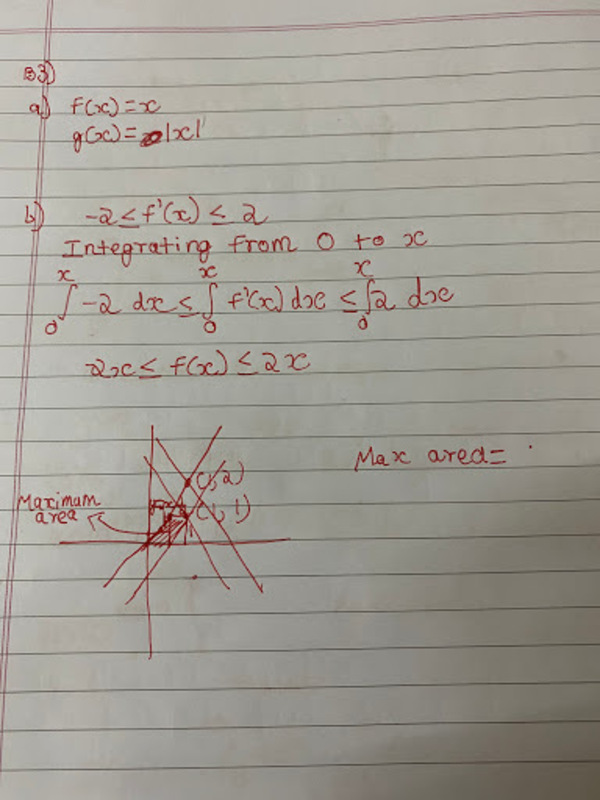 B3)
a) f(x) = x
g(x) = |x|
b) -2 ≤ f'(x) ≤ 2
Integrating from 0 to x
∫₀ˣ -2 dx ≤ ∫₀ˣ f'(x) dx ≤ ∫₀ˣ 2 dx
-2x ≤ f(x) ≤ 2x
Max area =
(1, 2)
(1, 1)
Maximum
area